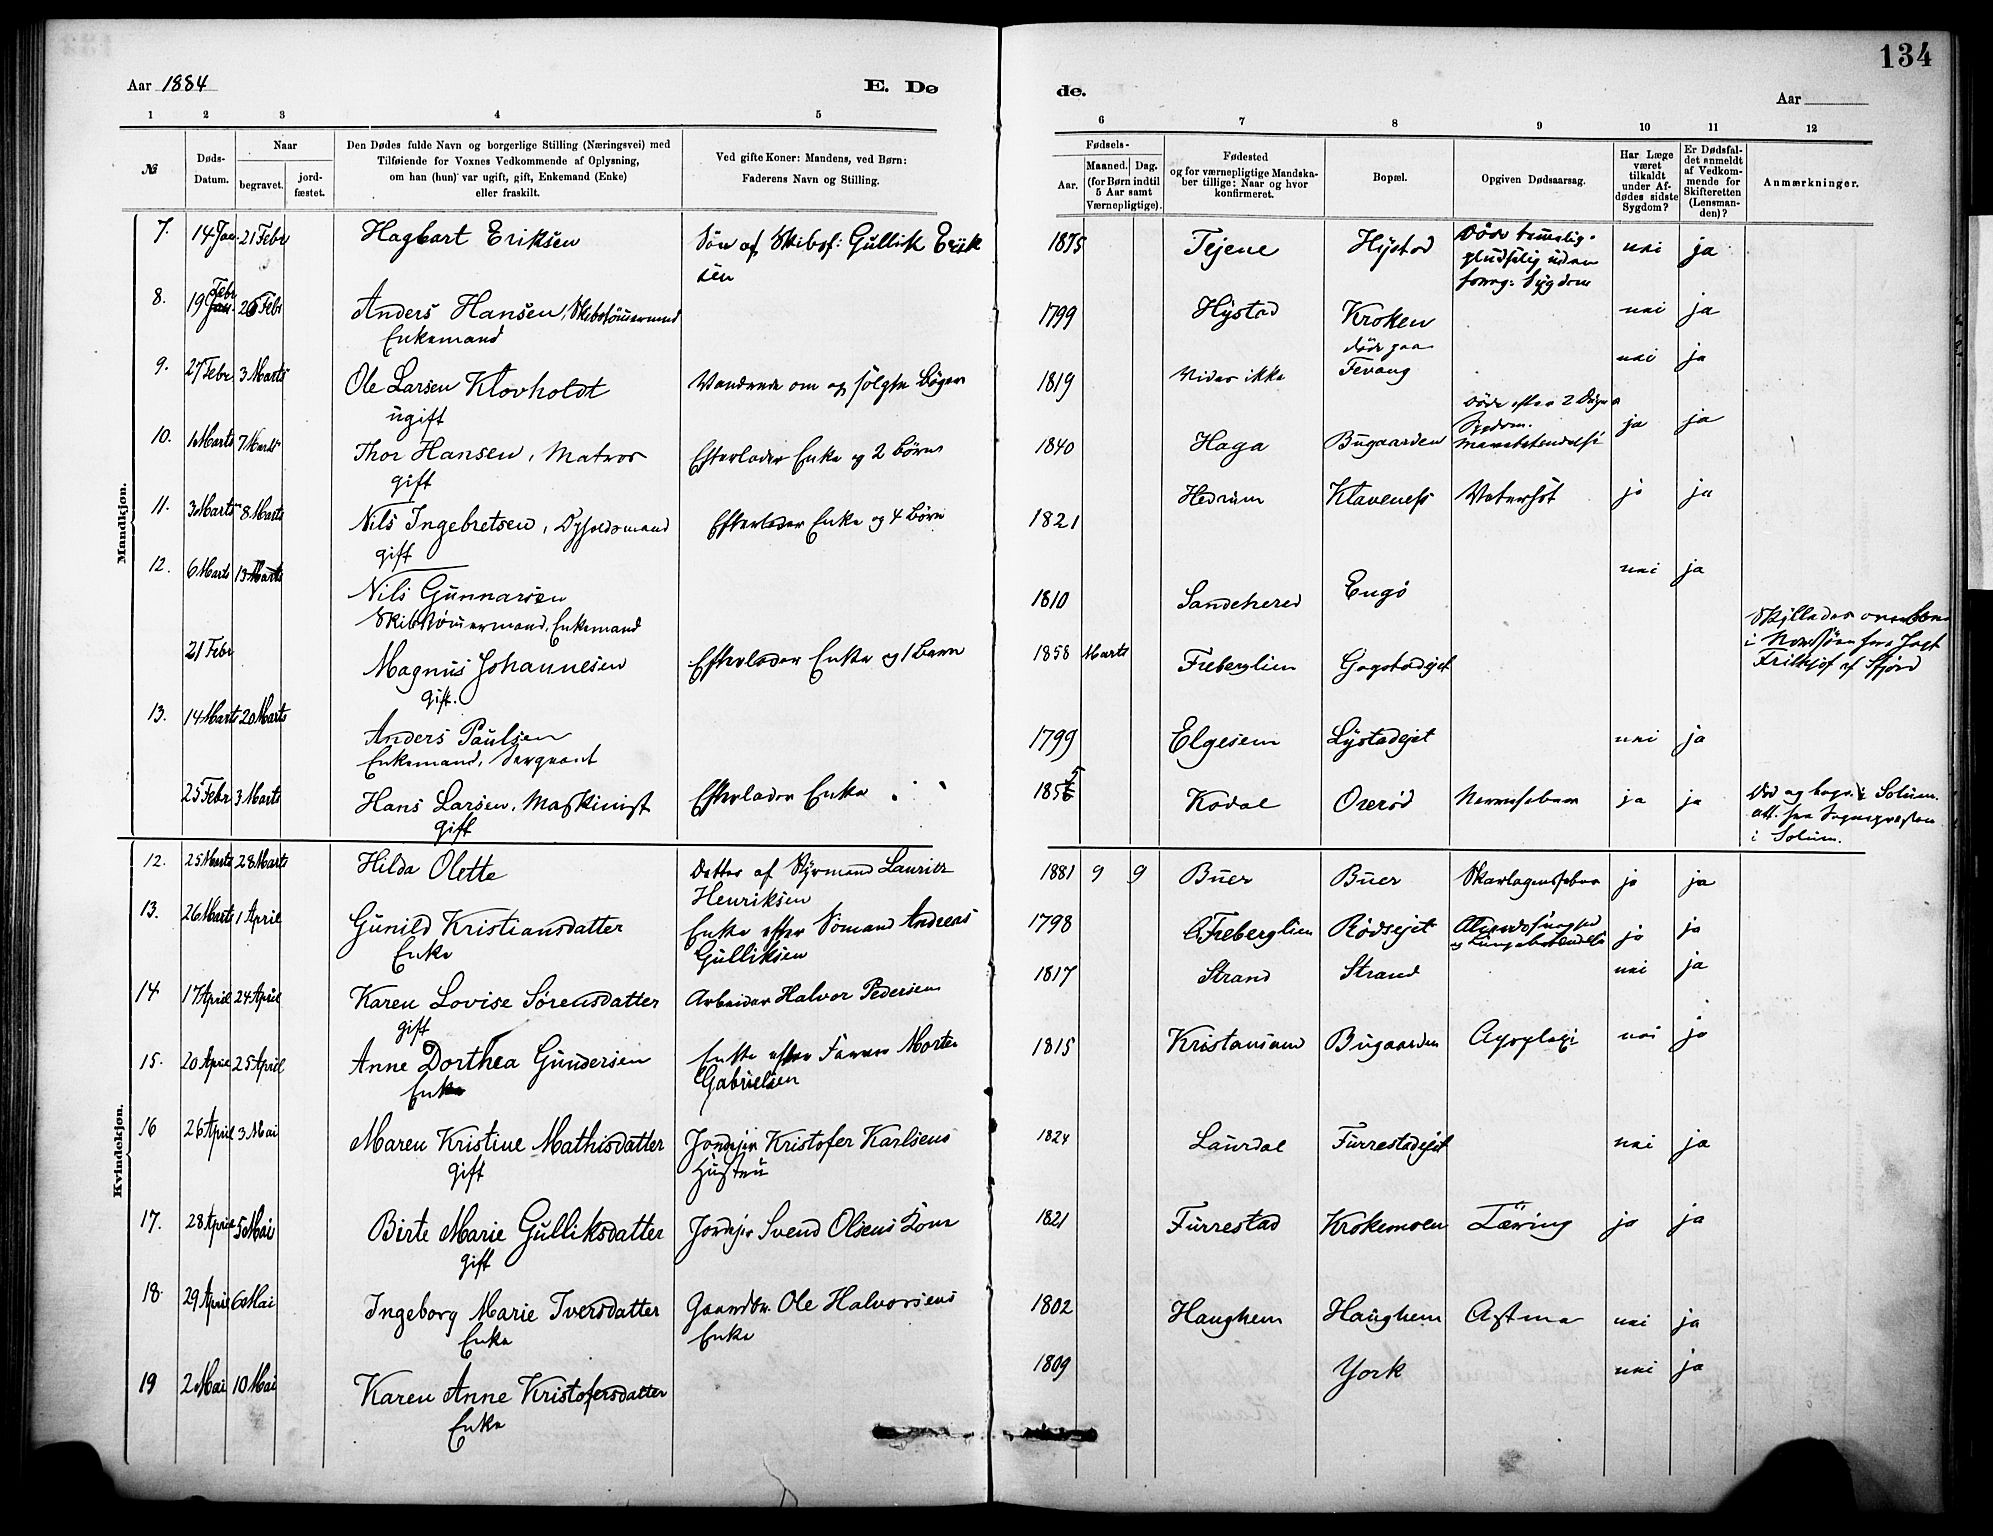 134
Aar 1884
E. Dø
de.
Aar
1 2 3 4 5
6 7 8 9 10 11 12
№
Døds-
Datum.
Naar
begravet.
jord-
fæstet.
Den Dødes fulde Navn og borgerlige Stilling (Næringsvei) med
Tilføiende for Voxnes Vedkommende af Oplysning,
om han (hun) var ugift, gift, Enkemand (Enke)
eller fraskilt.
Ved gifte Koner: Mandens, ved Børn:
Faderens Navn og Stilling.
Fødsels-
Aar.
Maaned. Dag.
(for Børn indtil
5 Aar samt
Værnepligtige).
Fødested
og for værnepligtige Mandska-
ber tillige: Naar og hvor
konfirmeret.
Bopæl.
Opgiven Dødsaarsag.
Har Læge
været
tilkaldt
under Af-
dødes sidste
Sygdom?
Er Dødsfal-
det anmeldt
af Vedkom-
mende for
Skifteretten
(Lensman-
den)?
Anmærkninger.
Mandkjøn.
7. 14 Jan 21 Febr Hagbart Eriksen Søn af Skibsf: Gullik Erik
sen
1875 Tejene Hystad Døde temmelig nei ja
pludselig uden
forng: Sygdom
8. 19 Febr 26 Febr Anders Hansen, Skibstømmermand
Enkemand
1799 Hystad Kroken nei ja
9. 27 Febr 3 Marts Ole Larsen Klovholdt Vandrede om og solgte Bøger
ugift
1819 Vides ikke døde paa
Fevang nei ja
10. 1 Marts 7 Marts Thor Hansen, Matros Efterlader Enke og 2 Børn
gift
1840 Haga Bugaarden Døde efter 2 Dages
Sygdom. ja ja
11. 3 Marts 8 Marts Nils Ingebretsen, Efterlader Enke og 4 Børn
gift
1821 Hedrum Klaveness Vatersot ja ja
12. 6 Marts 13 Marts Nils Gunnarsen
Skibstømmermand, Enkemand
1810 Sandeherred Engø nei ja
21 Febr Magnus Johannesen Efterlader Enke og 1 Barn
gift.
1858 Marts Freberglien Gogstadejet
Skylledes overbord
i Nordsøen fra Jagt
Frithjof af Sfjord
13. 14 Marts 20 Marts Anders Paulsen
Enkemand, Sergeant
1799 Elgesem Lystadejet nei ja
25 Febr 3 Marts Hans Larsen, Maskinist Efterlader Enke
gift
1855 Kodal Orerød Nervefeber ja ja Død og begr. i Solum.
att. fra Sognepresten
i Solum.
Kvindekjøn.
12. 25 Marts 28 Marts Hilda Olette Datter af Styrmand Lauritz
Henriksen
1881 9 9 Buer Buer Skarlagensfeber ja ja
13. 26 Marts 1 April Gunild Kristiansdatter Enke efter Sømand Andreas
Enke Gulliksen
1798 Freberglien Rødsejet Alderdomssvaghed
og Lungebetændelse ja ja
14 17 April 24 April Karen Lovise Sørensdatter Arbeider Halvor Pedersen
gift
1817 Strand Strand nei ja
15. 20 April 25 April Anne Dorthea Gundersen Enke efter Farver Morten
Enke Gabrielsen
1815 Kristiansand Bugaarden Apoplexi nei ja
16 26 April 3 Mai Maren Kristine Mathisdatter Jordejer Kristofer Karlsens
gift Hustru
1824 Laurdal Furrestadejet nei ja
17. 28 April 5 Mai Birte Marie Gulliksdatter Jordejer Svend Olsens Kone
gift
1821 Furrestad Krokemoen Tæring ja ja
18. 29 April 6 Mai Ingeborg Marie Iversdatter Gaardbr. Ole Halvorsens
Enke Enke
1802 Haughem Haughem Astma nei ja
19 2 Mai 10 Mai Karen Anne Kristofersdatter
Enke
1809 York nei ja